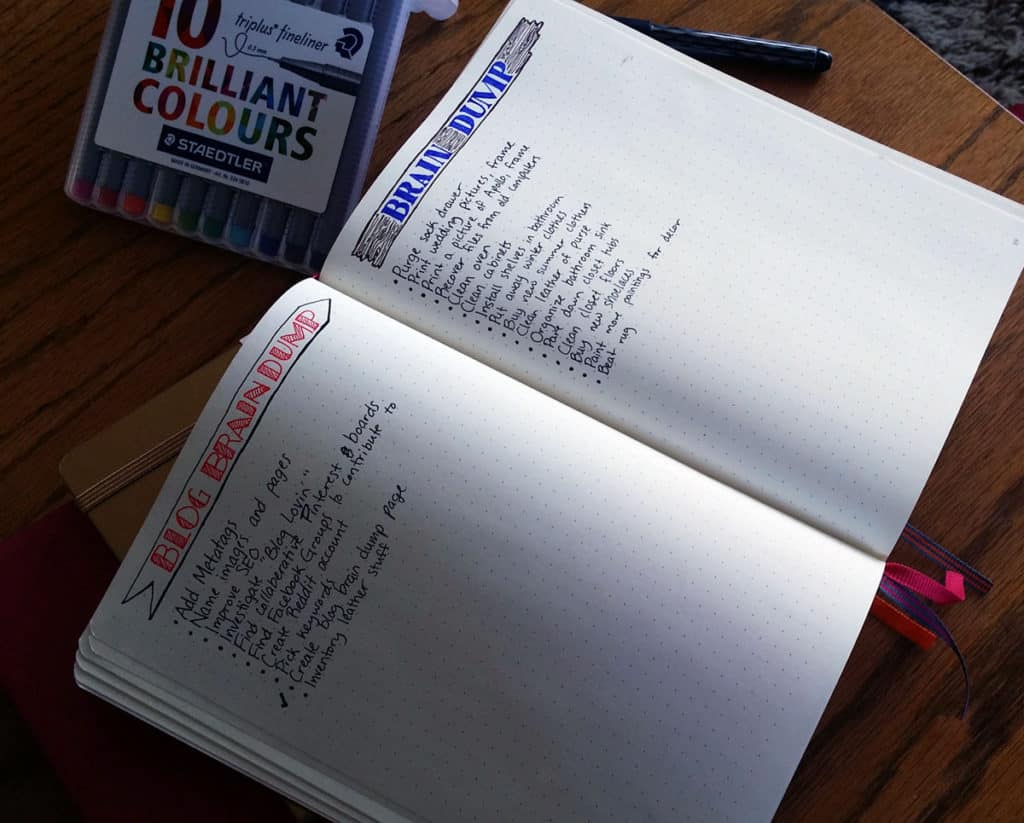 10
triplus® fineliner
0.3 mm
BRILLIANT
COLOURS
STAEDTLER
MADE IN GERMANY
BRAIN DUMP
• Purge sock drawer
• Print wedding pictures, frame
• Print a picture of Apollo, frame
• Recover files from old computers
• Clean oven
• Clean cabinets
• Install shelves in bathroom
• Put away winter clothes
• Buy new summer clothes
• Clean leather of purse
• Organize bathroom sink
• Pare down closet tubs
• Clean closet floors
• Buy new shoelaces
• Paint more paintings for decor
• Beat rug
BLOG BRAIN DUMP
• Add Metatags
• Name images and pages
• Improve SEO
• Investigate "Blog Lovin'"
• Find collaborative Pinterest boards
• Find Facebook Groups to contribute to
• Create Reddit account
• Pick keywords
✓ Create blog brain dump page
• Inventory leather stuff